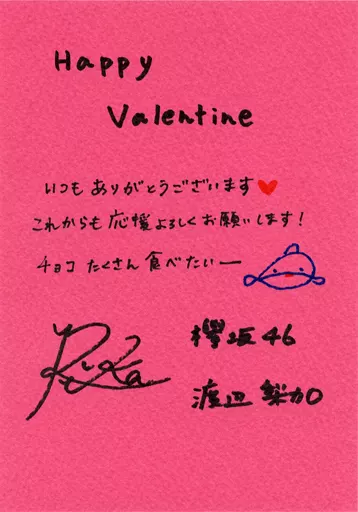 Happy
Valentine
いつもありがとうございます♥
これからも応援よろしくお願いします!
チョコ たくさん食べたいー
RiKa
欅坂46
渡辺 梨加